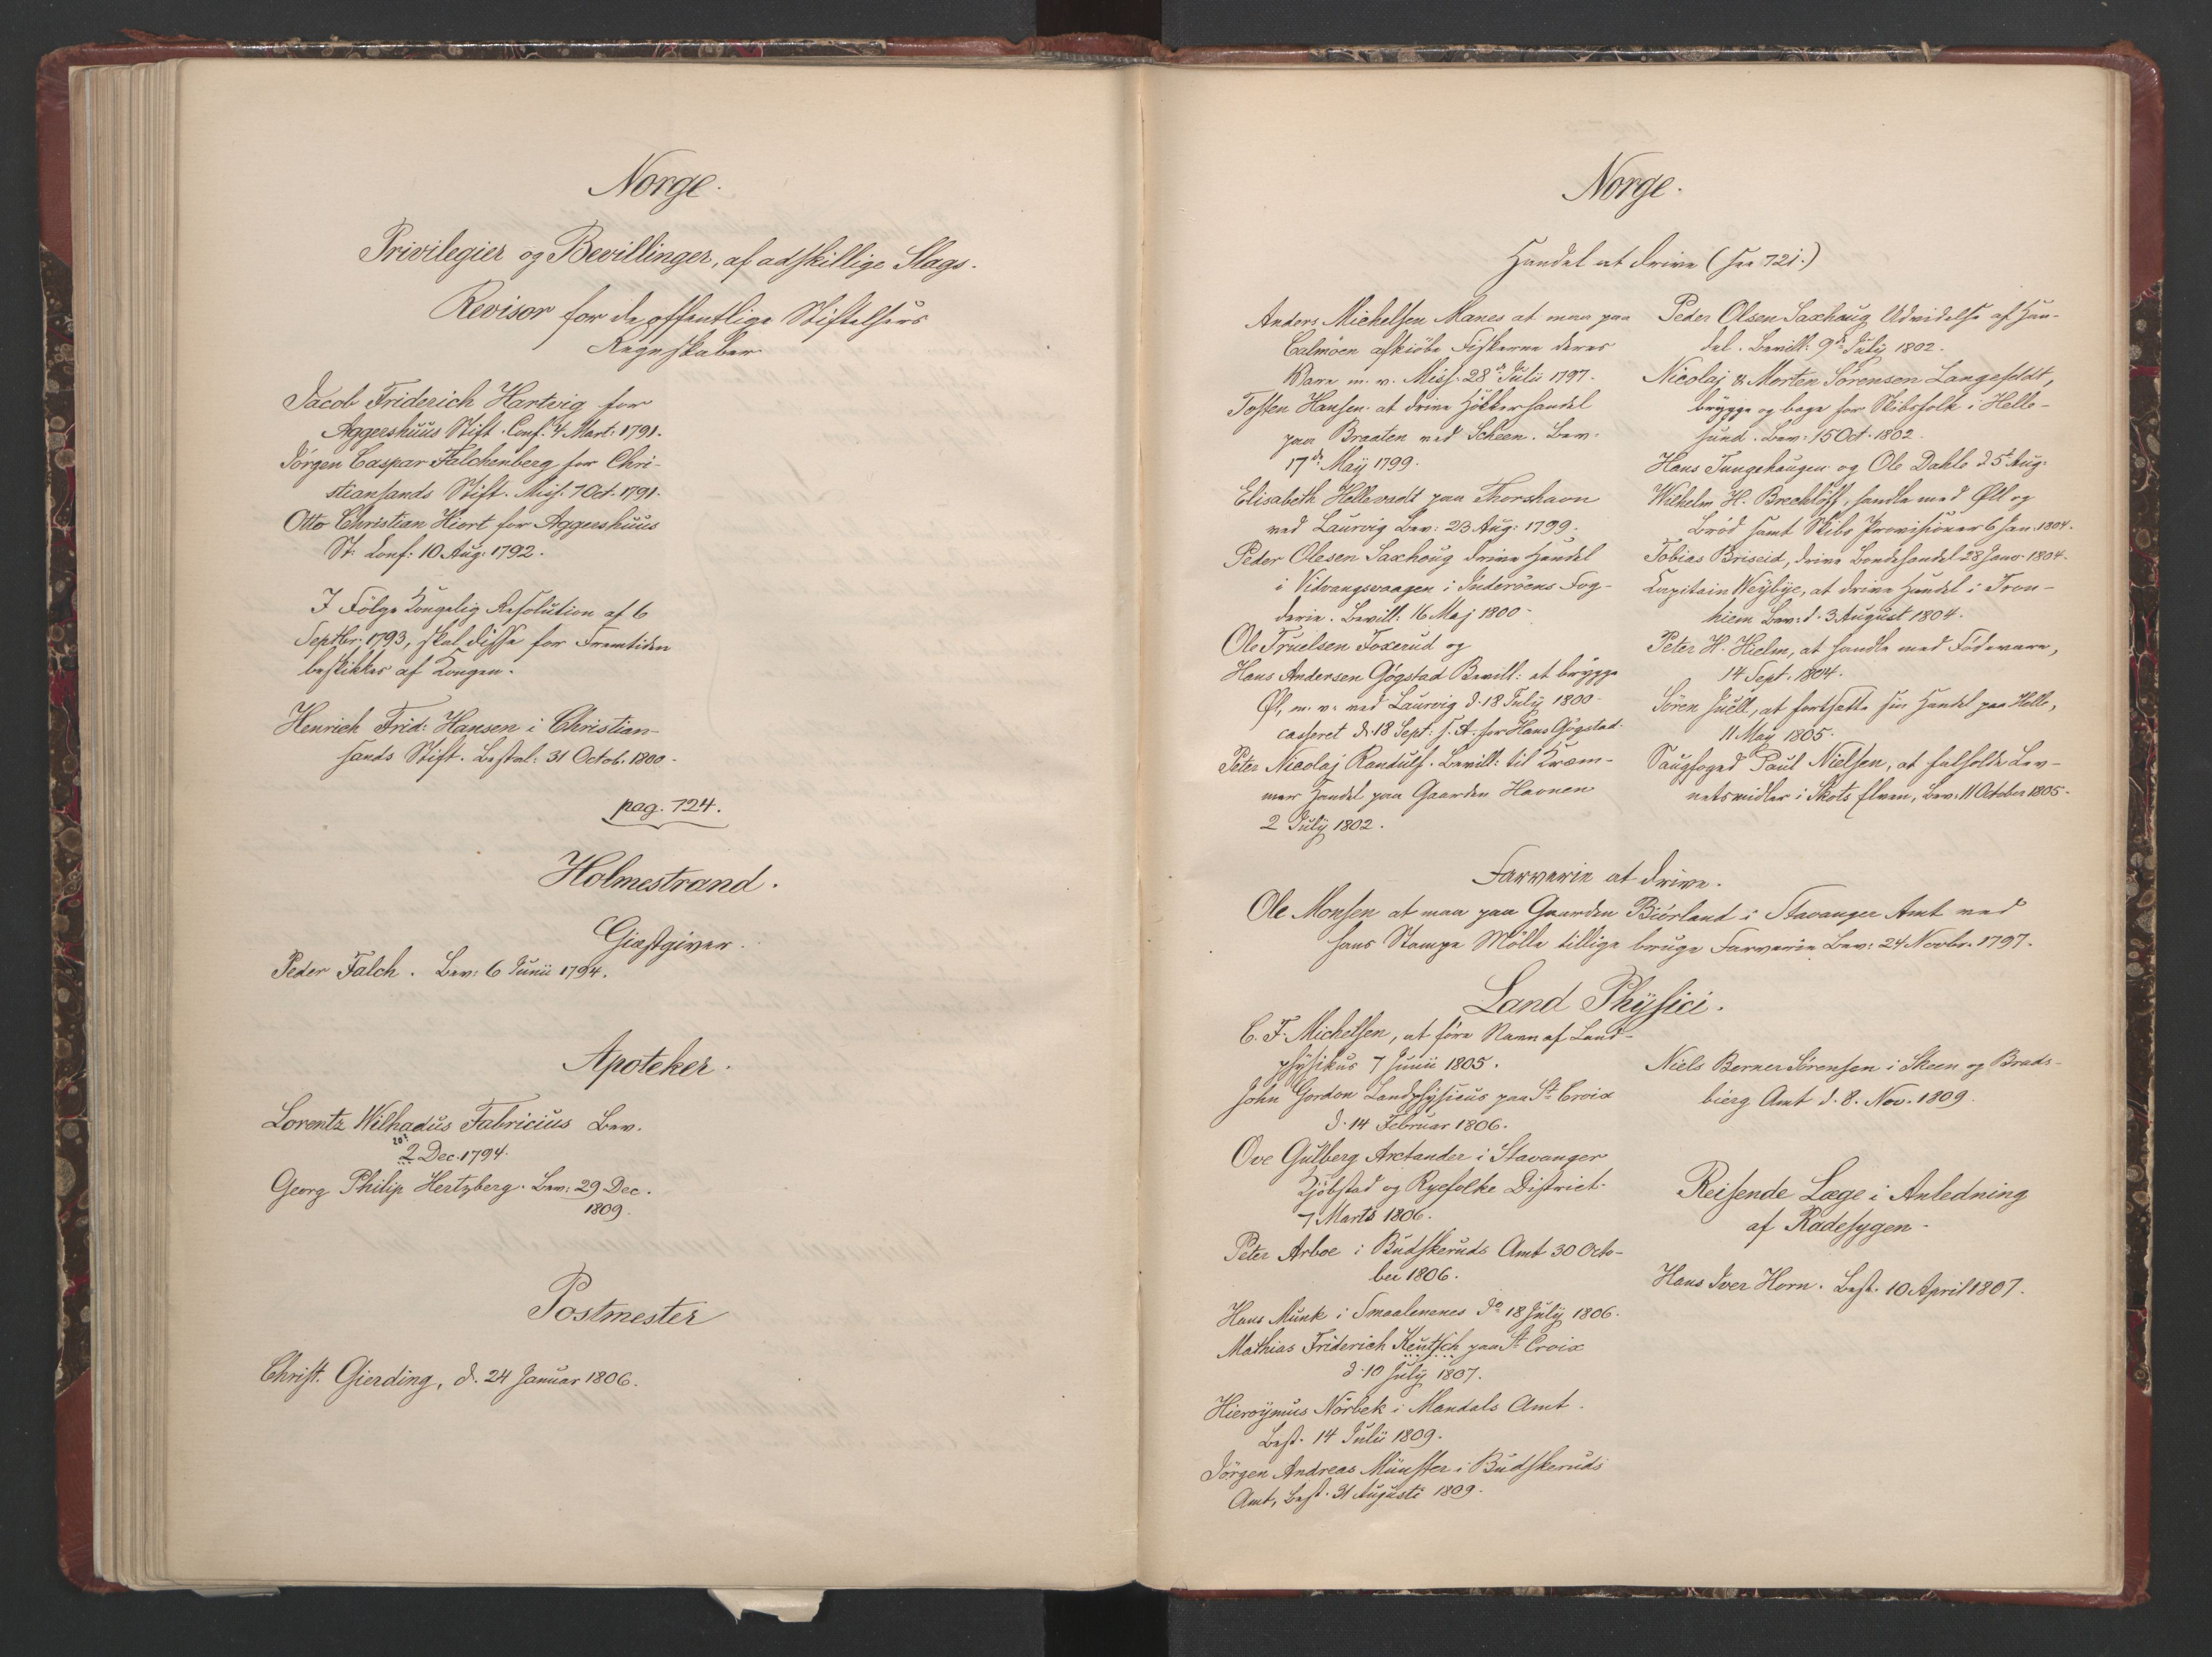 Norge.
Privilegier og Bevillinger, af adskillige Slags.
Revisor for de offentlige Stiftelsers
Regnskaber
Jacob Friderich Hartvig for
Aggershuus Stift. Conf. 4 Mart: 1791.
Jörgen Caspar Falchenberg for Chri-
stiansands Stift. Miss: 7 Oct. 1791.
Otto Christian Hiort for Aggershuus
St: Conf: 10 Aug: 1792.
I Fölge Kongelig Resolution af 6
Septbr. 1793, skal disse for Fremtiden
beskikkes af Kongen.
Henrich Frid: Hansen i Christian-
sands Stift. Bestal: 31 Octob. 1800.
pag. 724.
Holmestrand.
Giæstgiver.
Peder Falch. Bev: 6 Junii 1794.
Apoteker.
Lorentz Wilhadus Fabricius Bev.
2 Dec. 1794.
Georg Philip Hertzberg. Bev: 29 Dec.
1809.
Postmester
Christ. Gierding, d. 24 Januar 1806.
Norge.
Handel at drive (see 721.)
Anders Michelsen Manes at maa paa
Calmöen afkiöbe Fiskerne deres
Vare m. v. Miss: 28 Julii 1797.
Tosten Hansen at drive Höker handel
paa Braaten ved Scheen. Bev.
17de May 1799.
Elisabeth Hellevadt paa Thorshavn
ved Laurvig Bev: 23 Aug: 1799.
Peder Olesen Saxhoug drive Handel
i Vidvangsvaagen i Inderöens Fog-
derie. Bevill: 16 Maj 1800.
Ole Truelsen Foxerud og
Hans Andersen Gögstad Bevill: at brygge
Øl, m. v. ved Laurvig d. 18 July 1800.
casseret d. 18 Sept: s. A. for Hans Gögstad.
Peter Nicolaj Randulf. Bevill: til Kræm-
mer Handel paa Gaarden Havnen
2 July 1802.
Peder Olsen Saxhoug Udvidelse af Han-
del. Bevill: 9de July 1802.
Nicolaj & Morten Sörensen Langefeldt,
brygge og bage for Skibsfolk i Helle-
sund. Bev: 15 Oct. 1802.
Hans Tungehaugen og Ole Dahle d. 5t Aug.
Wilhelm H. Brechlöff, handle med Øll og
Bröd samt Skibs Provisioner 6 Jan. 1804.
Tobias Briseid, drive Bondehandel 28 Janv. 1804.
Capitain Weybye, at drive Handel i Tron-
hiem Bev: d. 3 August 1804.
Peter H. Hielm, at handle med Födevare,
14 Sept. 1804.
Sören Juell, at fortsætte sin Handel paa Helle,
11 May 1805.
Saugfoged Paul Nielsen, at falholde Lev-
netsmidler i Skots elven, Bev: 11 October 1805.
Farverie at drive.
Ole Monsen at maa paa Gaarden Biörland i Stavanger Amt ved
hans Stampe Mölle tillige bruge Farverie Bev: 24 Novbr. 1797.
Land Physici.
C. F. Michelsen, at före Navn af Land-
physikus 7 Junii 1805.
John Gordon Landphysicus paa St Croix
d. 14 Februar 1806.
Ove Gulberg Arctander i Stavanger
Kjöbstad og Ryefolke District.
7 Marts 1806.
Peter Arboe i Budskeruds Amt 30 Octo-
ber 1806.
Hans Munk i Smaalenenes do 18 July 1806.
Mathias Friderich Keutsch paa St Croix
d. 10 July 1807.
Hieroÿmus Nörbek i Mandals Amt.
Best. 14 Julii 1809.
Jörgen Andreas Münster i Budskeruds
Amt, Best. 31 Augusti 1809.
Niels Berner Sörensen i Skeen og Brads-
bierg Amt d. 8. Nov. 1809.
Reisende Læge i Anledning
af Radesygen.
Hans Iver Horn. Best. 10 April 1807.